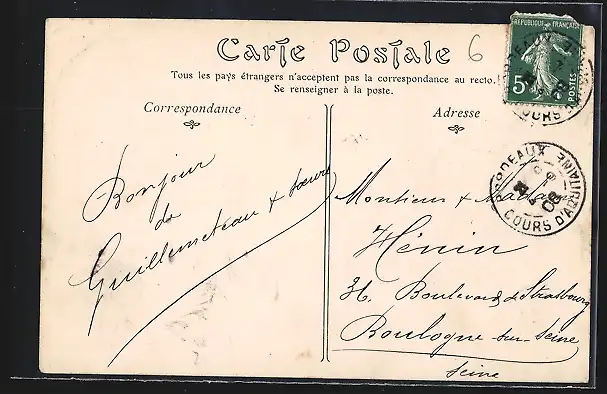 Carte Postale
6
Tous les pays étrangers n'acceptent pas la correspondance au recto.
Se renseigner à la poste.
Correspondance
Adresse
RÉPUBLIQUE FRANÇAISE
5c
POSTES
BORDEAUX
COURS D'AQUITAINE
08
Bonjour
de
Guillemeteau & soeurs
Monsieur & Madame
Hénin
36 Boulevard de Strasbourg
Boulogne sur Seine
Seine